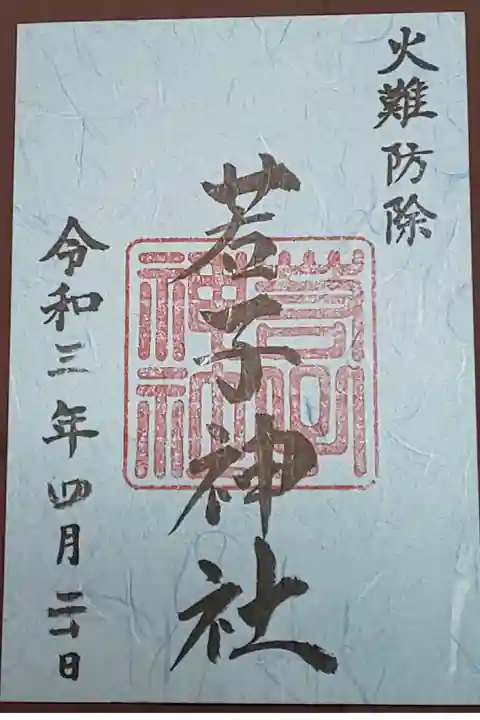 火難防除
若子神社
令和三年四月二十日